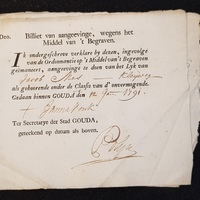 Deo.
Billiet van aangeevinge, wegens het
Middel van 't Begraven.
Ik ondergeschreve verklare by deeen, ingevolge
van de Ordonnantie op 't Middel van 't Begraven
geëmaneert, aangeevinge te doen van het Lyk van
Jacob
als gehoorende onder de Classis van d' onvermogende.
Gedaan binnen GOUDA den 12 1791.
Ter Secretarye der Stad GOUDA,
geteekend op datum als boven.